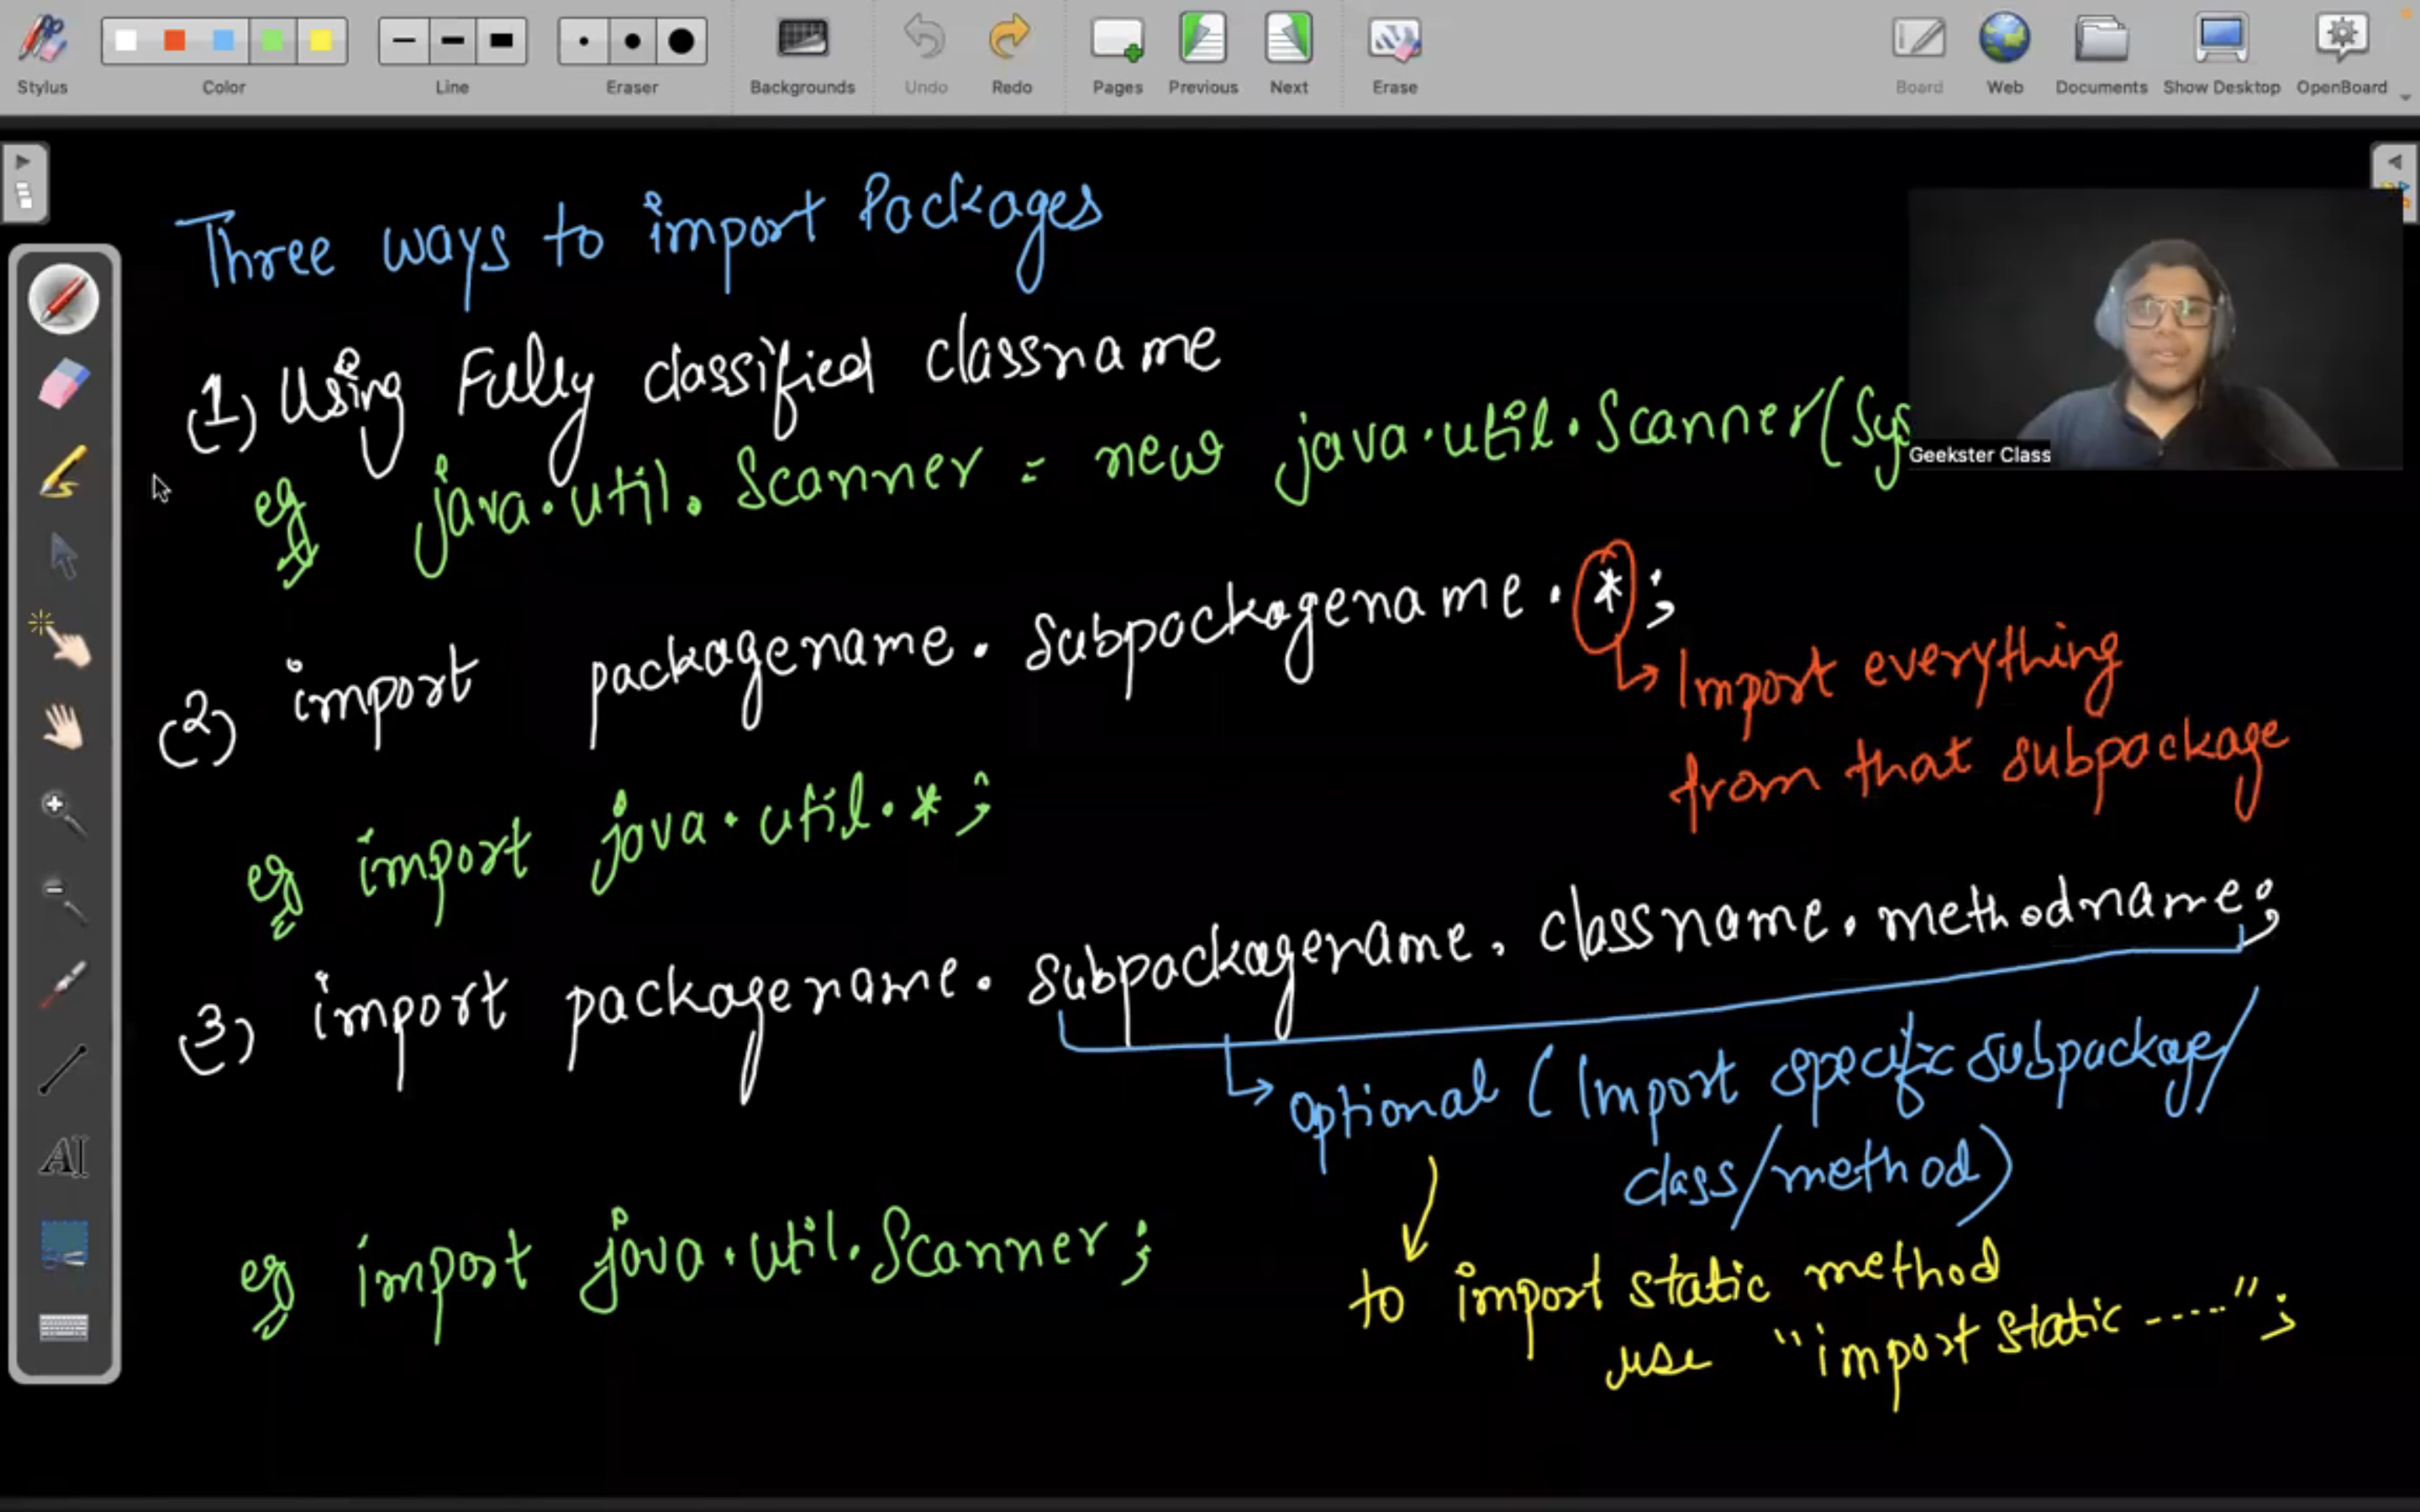 Stylus
Color
Line
Eraser
Backgrounds
Undo
Redo
Pages
Previous
Next
Erase
Board
Web
Documents
Show Desktop
OpenBoard
Three ways to import Packages
(1) Using Fully classified classname
eg java.util.Scanner = new java.util.Scanner(Sys
Geekster Class
(2) import packagename.subpackagename.*;
Import everything
from that subpackage
eg import java.util.*;
(3) import packagename.subpackagename.classname.methodname;
Optional (Import specific subpackage/
class/method)
eg import java.util.Scanner;
to import static method
use "import static -----";
AI